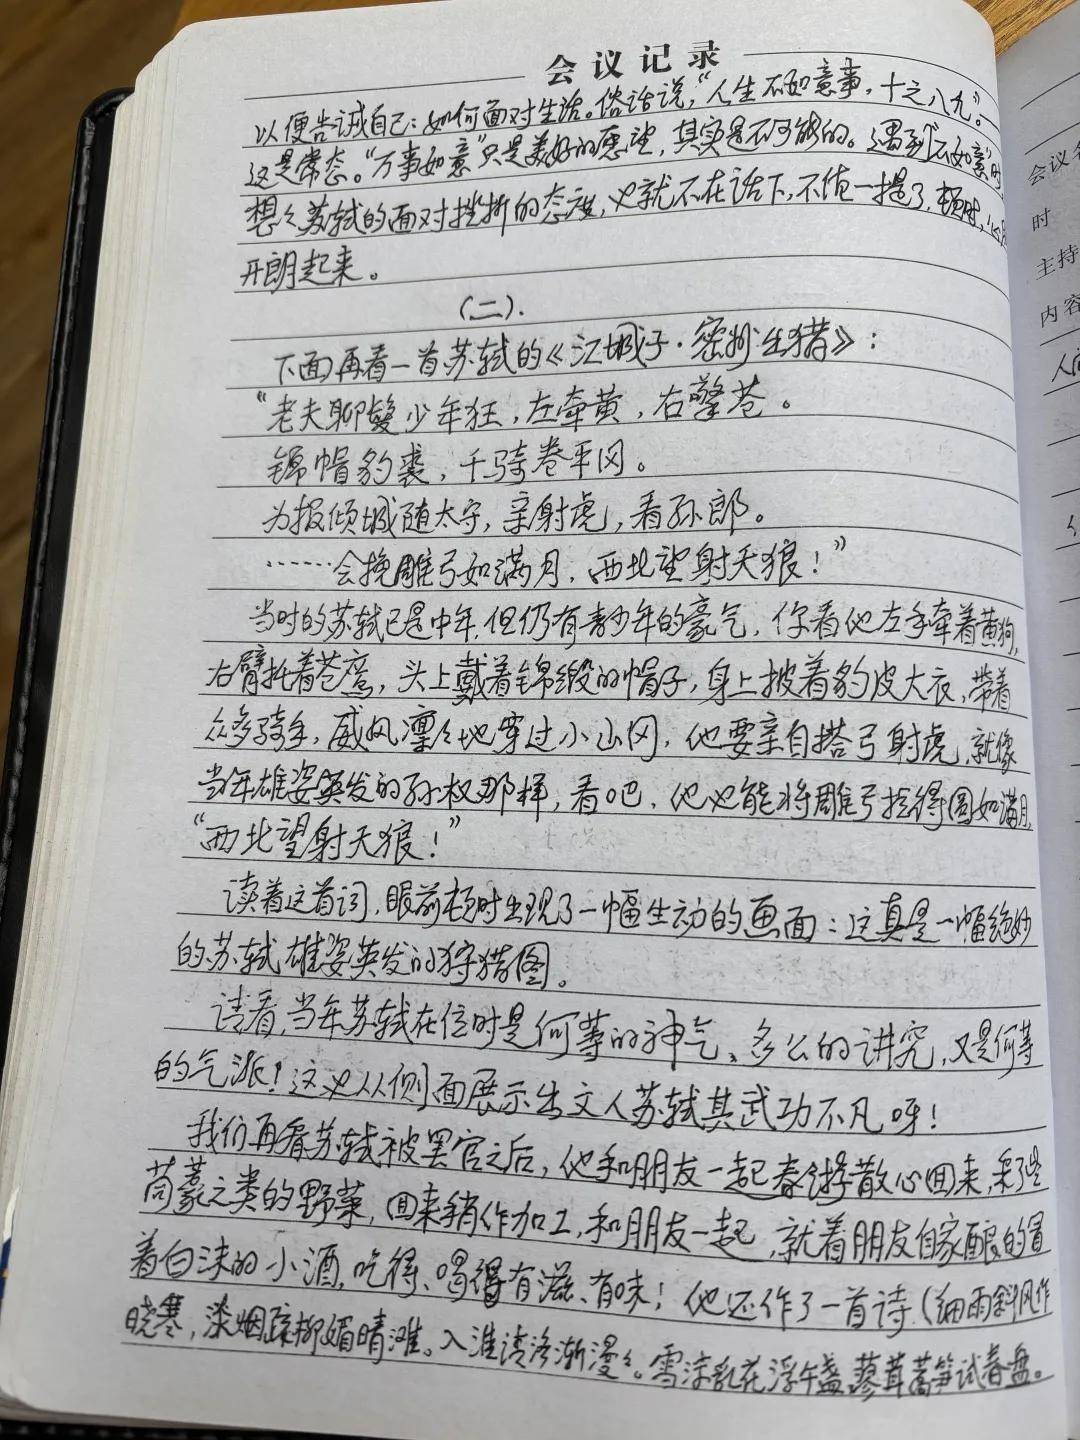 会议记录
以便告诫自己：如何面对生活。俗话说，“人生不如意事，十之八九”。
这是常态。“万事如意”只是美好的愿望，其实是不可能的。遇到“不如意”时
想々苏轼的面对挫折的态度，也就不在话下，不值一提了，顿时，心
开朗起来。
（二）.
下面再看一首苏轼的《江城子·密州出猎》：
“老夫聊发少年狂，左牵黄，右擎苍。
锦帽豹裘，千骑卷平冈。
为报倾城随太守，亲射虎，看孙郎。
……会挽雕弓如满月，西北望射天狼！”
当时的苏轼已是中年，但仍有青少年的豪气，你看他左手牵着黄狗，
右臂托着苍鹰，头上戴着锦缎的帽子，身上披着豹皮大衣，带着
众多骑手，威风凛々地穿过小山冈，他要亲自搭弓射虎，就像
当年雄姿英发的孙权那样，看吧，他也能将雕弓拉得圆如满月，
“西北望射天狼！”
读着这首词，眼前顿时出现了一幅生动的画面：这真是一幅绝妙
的苏轼雄姿英发的狩猎图。
请看，当年苏轼在位时是何等的神气、多么的讲究，又是何等
的气派！这也从侧面展示出文人苏轼其武功不凡呀！
我们再看苏轼被罢官之后，他和朋友一起春游散心回来，采了些
茼蒿之类的野菜，回来稍作加工，和朋友一起，就着朋友自家酿的冒
着白沫的小酒，吃得、喝得有滋、有味！他还作了一首诗（细雨斜风作
晓寒，淡烟疏柳媚晴滩。入淮清洛渐漫々。雪沫乳花浮午盏，蓼茸蒿笋试春盘。
会议名
时
主持
内容
人间